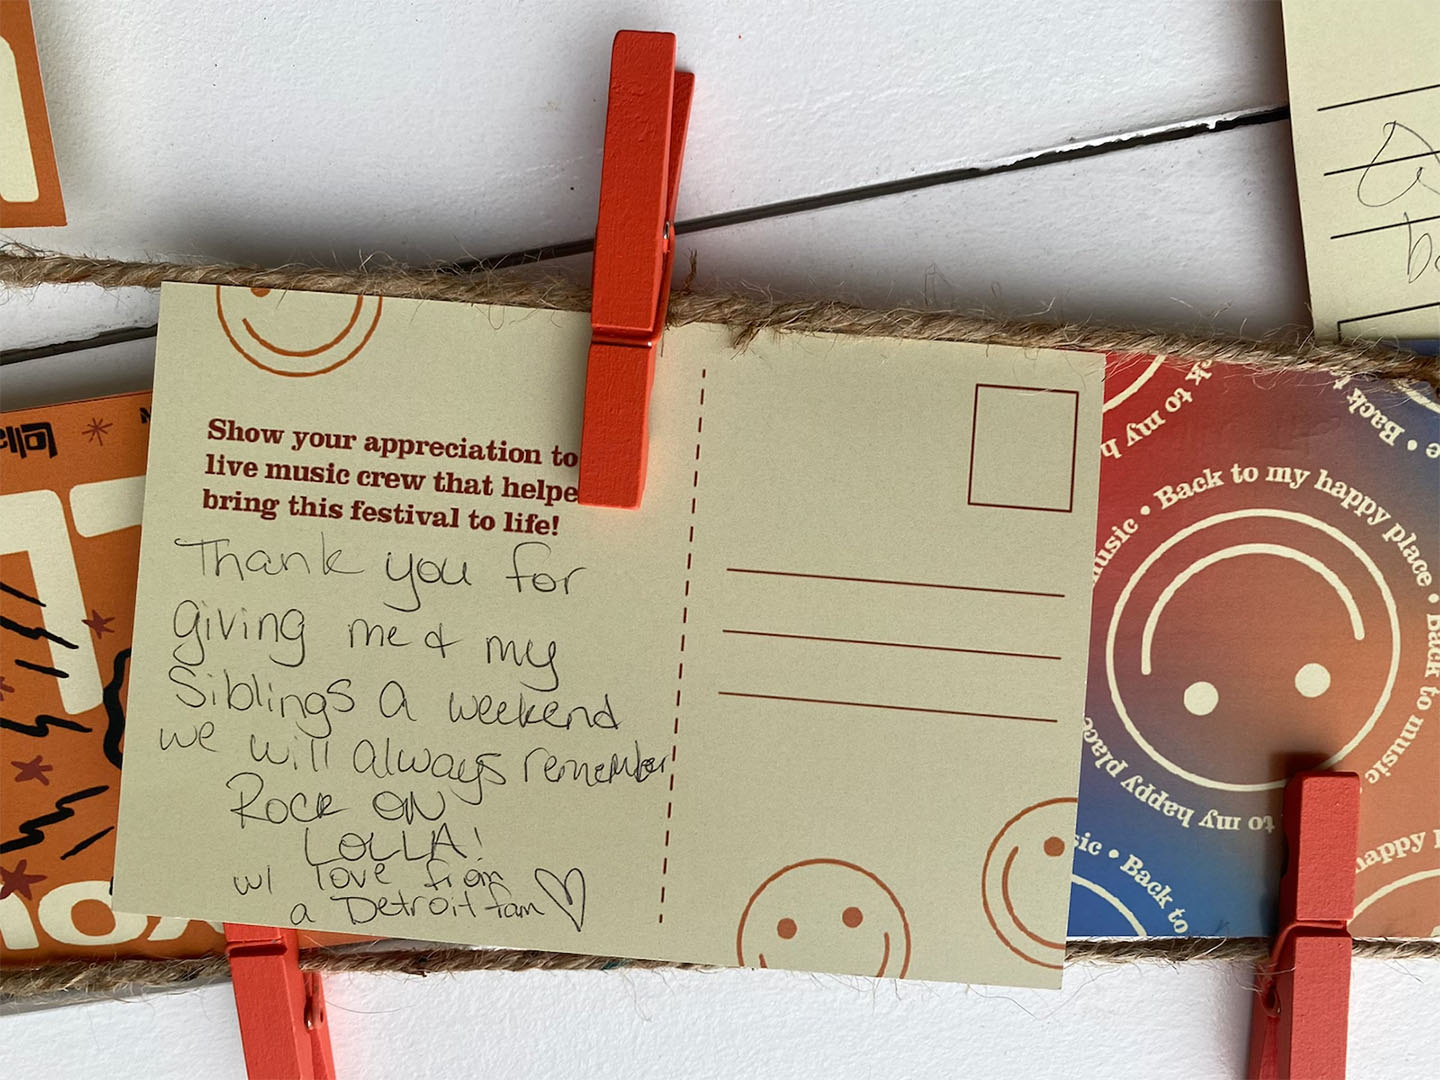 Show your appreciation to
live music crew that helpe
bring this festival to life!
Thank you for
giving me & my
Siblings a weekend
we will always remember
ROCK ON
LOLLA!
w/ love from
a Detroit fam
Back to my happy place • Back to music •
to my happy place
music
Back to my h
• Back
ck to
sic • Back to
happy